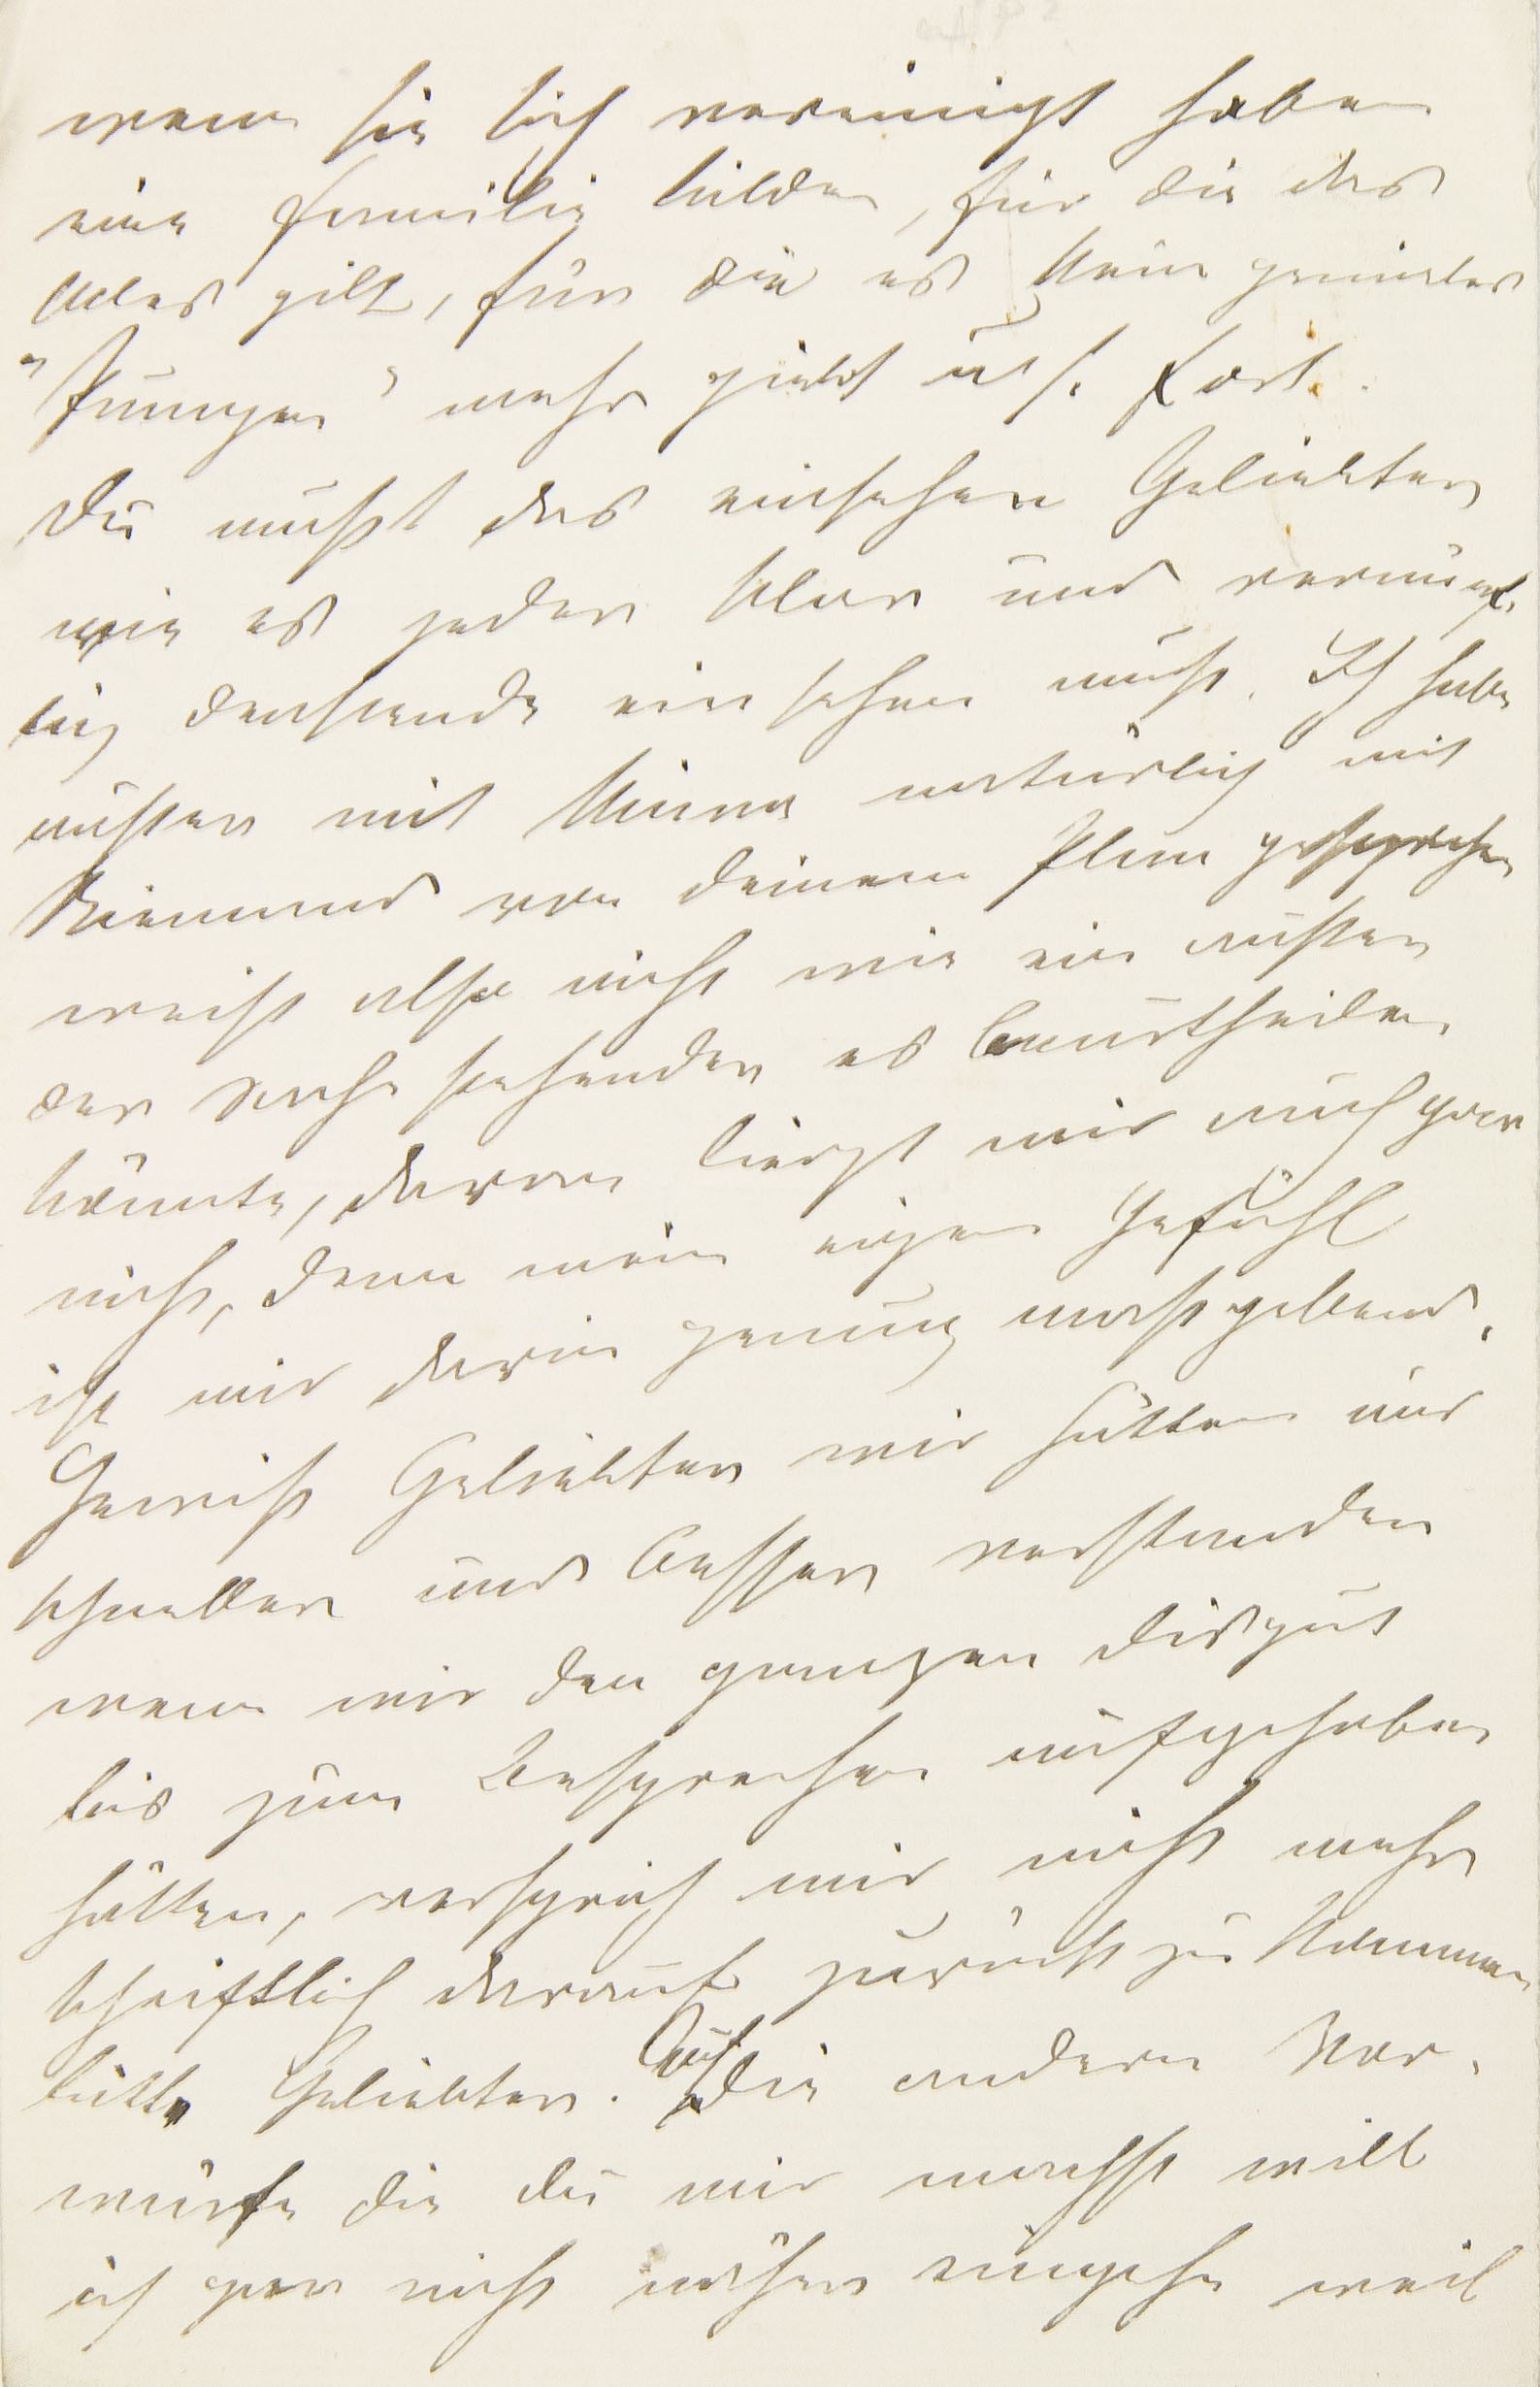 wenn sie sich vereinigt haben
eine Familie bilden, für die das
Alles gilt, für die es kein geniertes
"Jungen" mehr giebt u. s. fort.
Du mußt das einsehen Geliebter
wie es jeder klar und vernünf-
tig denkende einsehen muß. Ich habe
außer mit Minna natürlich mit
Niemand von deinem Plan gesprochen
weiß also nicht wie ein außer
der Sache stehender es beurtheilen
könnte, daran liegt mir auch gar
nicht, denn mein eigen Gefühl
ist mir darin genug maßgebend.
Gewiß Geliebter wir hätten uns
schneller und besser verstanden
wenn wir den ganzen Disput
bis zum Besprechen aufgehoben
hätten, versprich mir nicht mehr
schriftlich darauf zurück zu kommen
bitte Geliebter. Auf die andern Vor-
würfe die du mir machst will
ich gar nicht näher eingehn weil